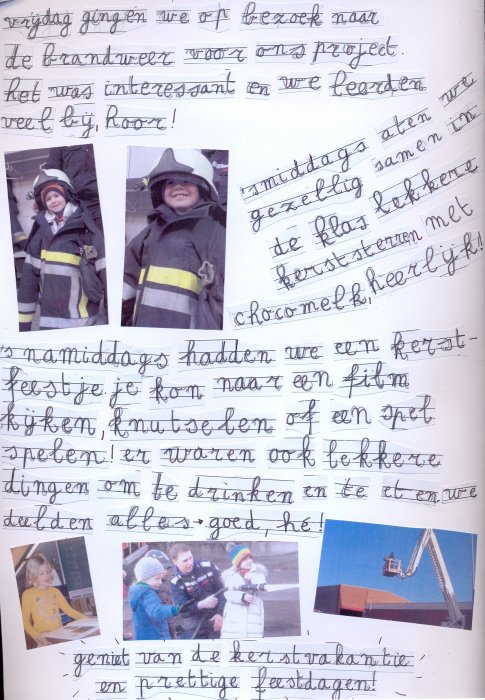 vrijdag gingen we op bezoek naar
de brandweer voor ons project.
het was interessant en we leerden
veel bij, hoor!
'smiddags aten we
gezellig samen in
de klas lekkere
kerststerren met
chocomelk, heerlijk!
's namiddags hadden we een kerst-
feestje. je kon naar een film
kijken, knutselen of een spel
spelen! er waren ook lekkere
dingen om te drinken en te et en we
deelden alles → goed, hé!
geniet van de kerstvakantie
en prettige feestdagen!